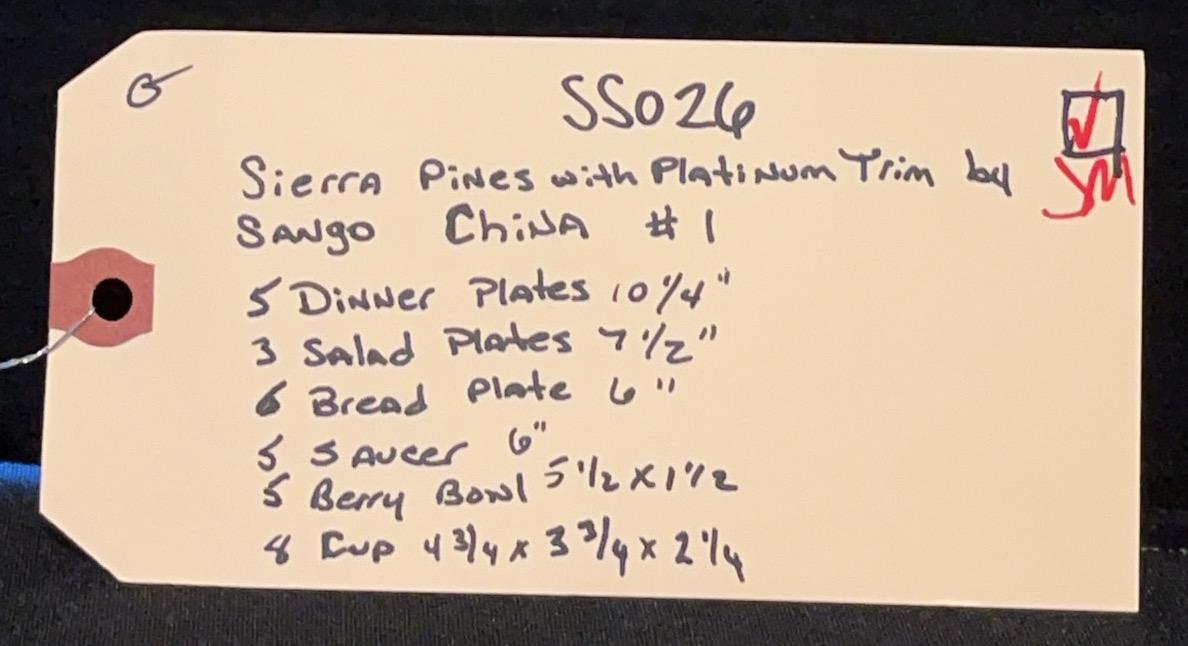 SS026
Sierra Pines with Platinum Trim by
Sango China #1
5 Dinner Plates 10 1/4"
3 Salad Plates 7 1/2"
6 Bread Plate 6"
5 Saucer 6"
5 Berry Bowl 5 1/2 x 1 1/2
8 Cup 4 3/4 x 3 3/4 x 2 1/4